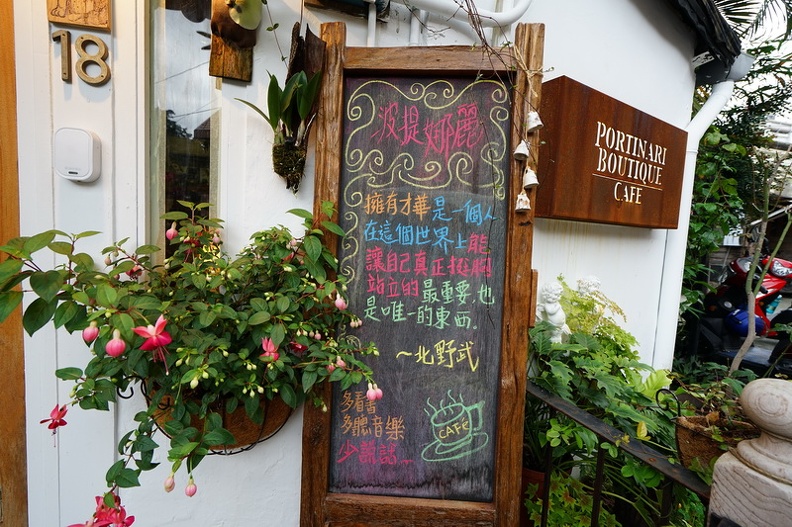 18
波提娜麗
擁有才華是一個人
在這個世界上能
讓自己真正挺胸
站立的最重要,也
是唯一的東西.
~北野武
多看書
多聽音樂
少說話...
CAFE
PORTINARI
BOUTIQUE
CAFE